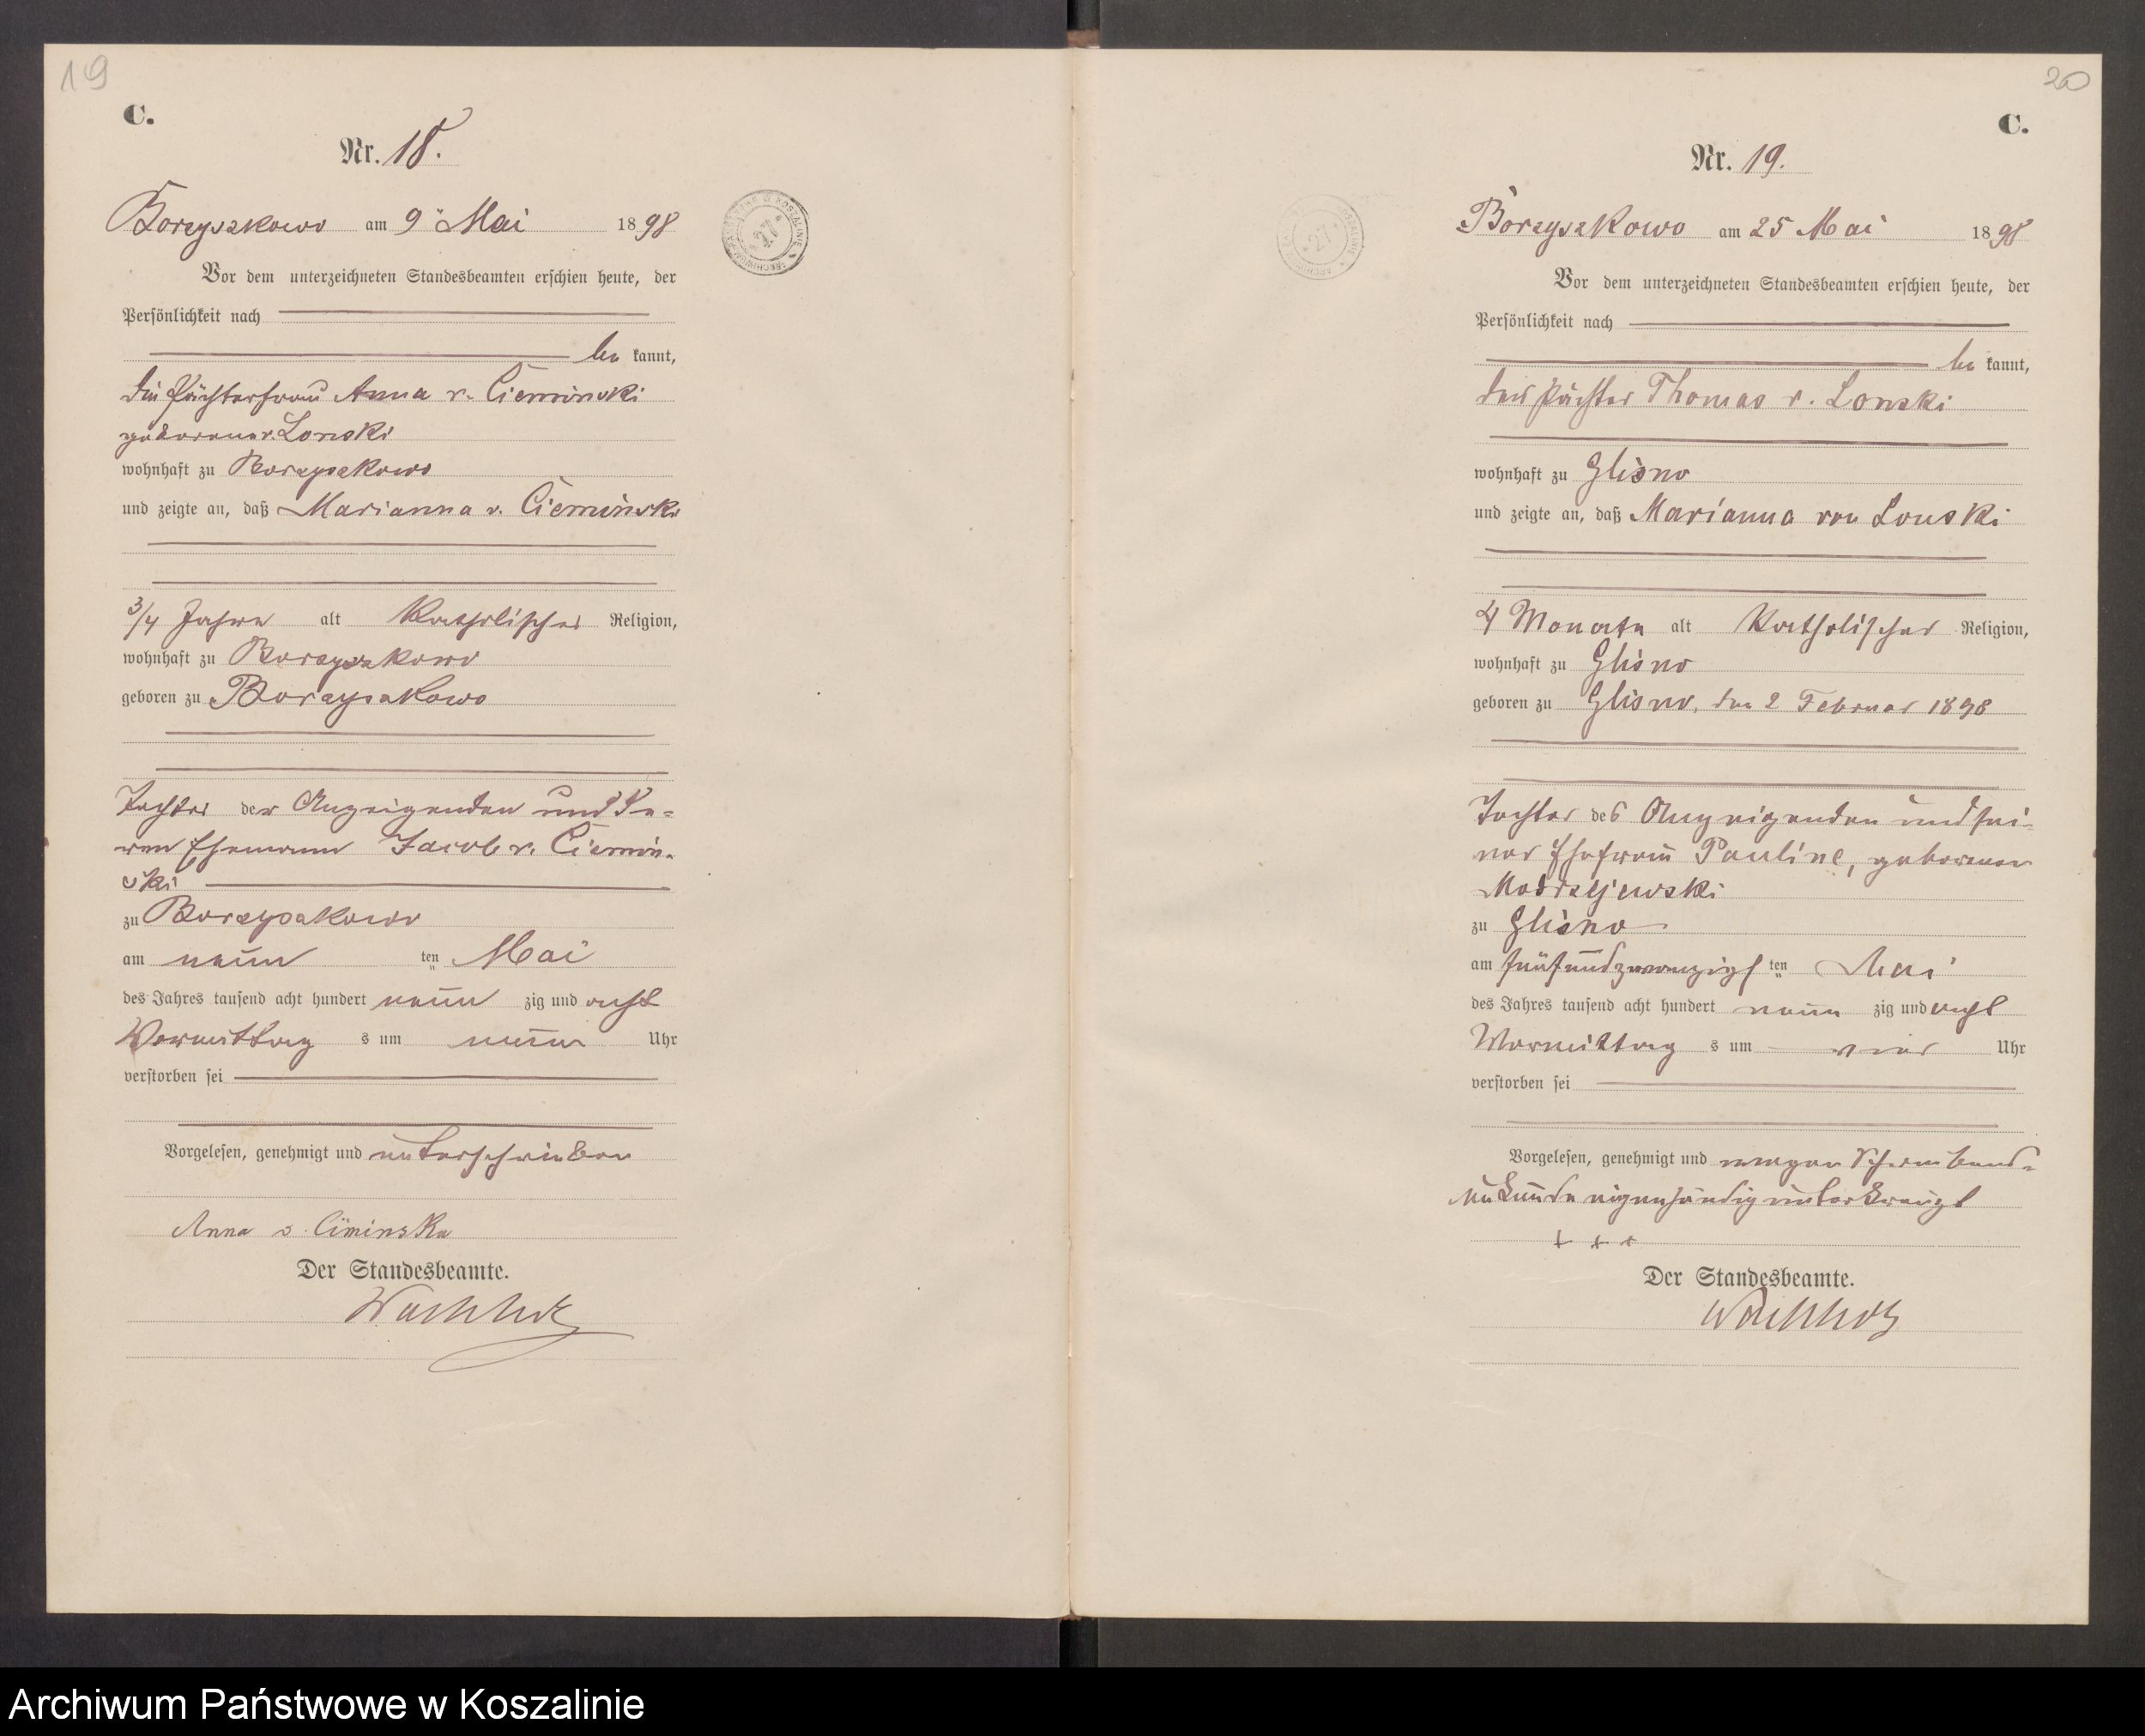 19
C.
Nr. 18.
Borzyszkowo am 9ⁿ Mai 1898
Vor dem unterzeichneten Standesbeamten erschien heute, der
Persönlichkeit nach
be kannt,
die Pächterfrau Anna v. Cieminski
geborene v. Lonski
wohnhaft zu Borzyszkowo
und zeigte an, daß Marianna v. Cieminski
3/4 Jahre alt Katholischer Religion,
wohnhaft zu Borzyszkowo
geboren zu Borzyszkowo
Tochter der Anzeigenden und de-
ren Ehemann Jacob v. Ciemin-
ski
zu Borzyszkowo
am neun ten Mai
des Jahres tausend acht hundert neun zig und acht
Vormittag s um neun Uhr
verstorben sei
Vorgelesen, genehmigt und unterschrieben
Anna v. Ciminska
Der Standesbeamte.
Wachholz
ARCHIWUM PAŃSTWOWE W KOSZALINIE
27
20
C.
Nr. 19.
Borzyszkowo am 25 Mai 1898
Vor dem unterzeichneten Standesbeamten erschien heute, der
Persönlichkeit nach
be kannt,
der Pächter Thomas v. Lonski
wohnhaft zu Glisno
und zeigte an, daß Marianna von Lonski
4 Monate alt Katholischer Religion,
wohnhaft zu Glisno
geboren zu Glisno, den 2 Februar 1898
Tochter des Anzeigenden und sei-
ner Ehefrau Pauline, geborenen
Modrzejewski
zu Glisno
am fünfundzwanzigs ten Mai
des Jahres tausend acht hundert neun zig und acht
Vormittag s um vier Uhr
verstorben sei
Vorgelesen, genehmigt und wegen Schreibens-
unkunde eigenhändig unterkreuzt
+ + +
Der Standesbeamte.
Wachholz
27
Archiwum Państwowe w Koszalinie